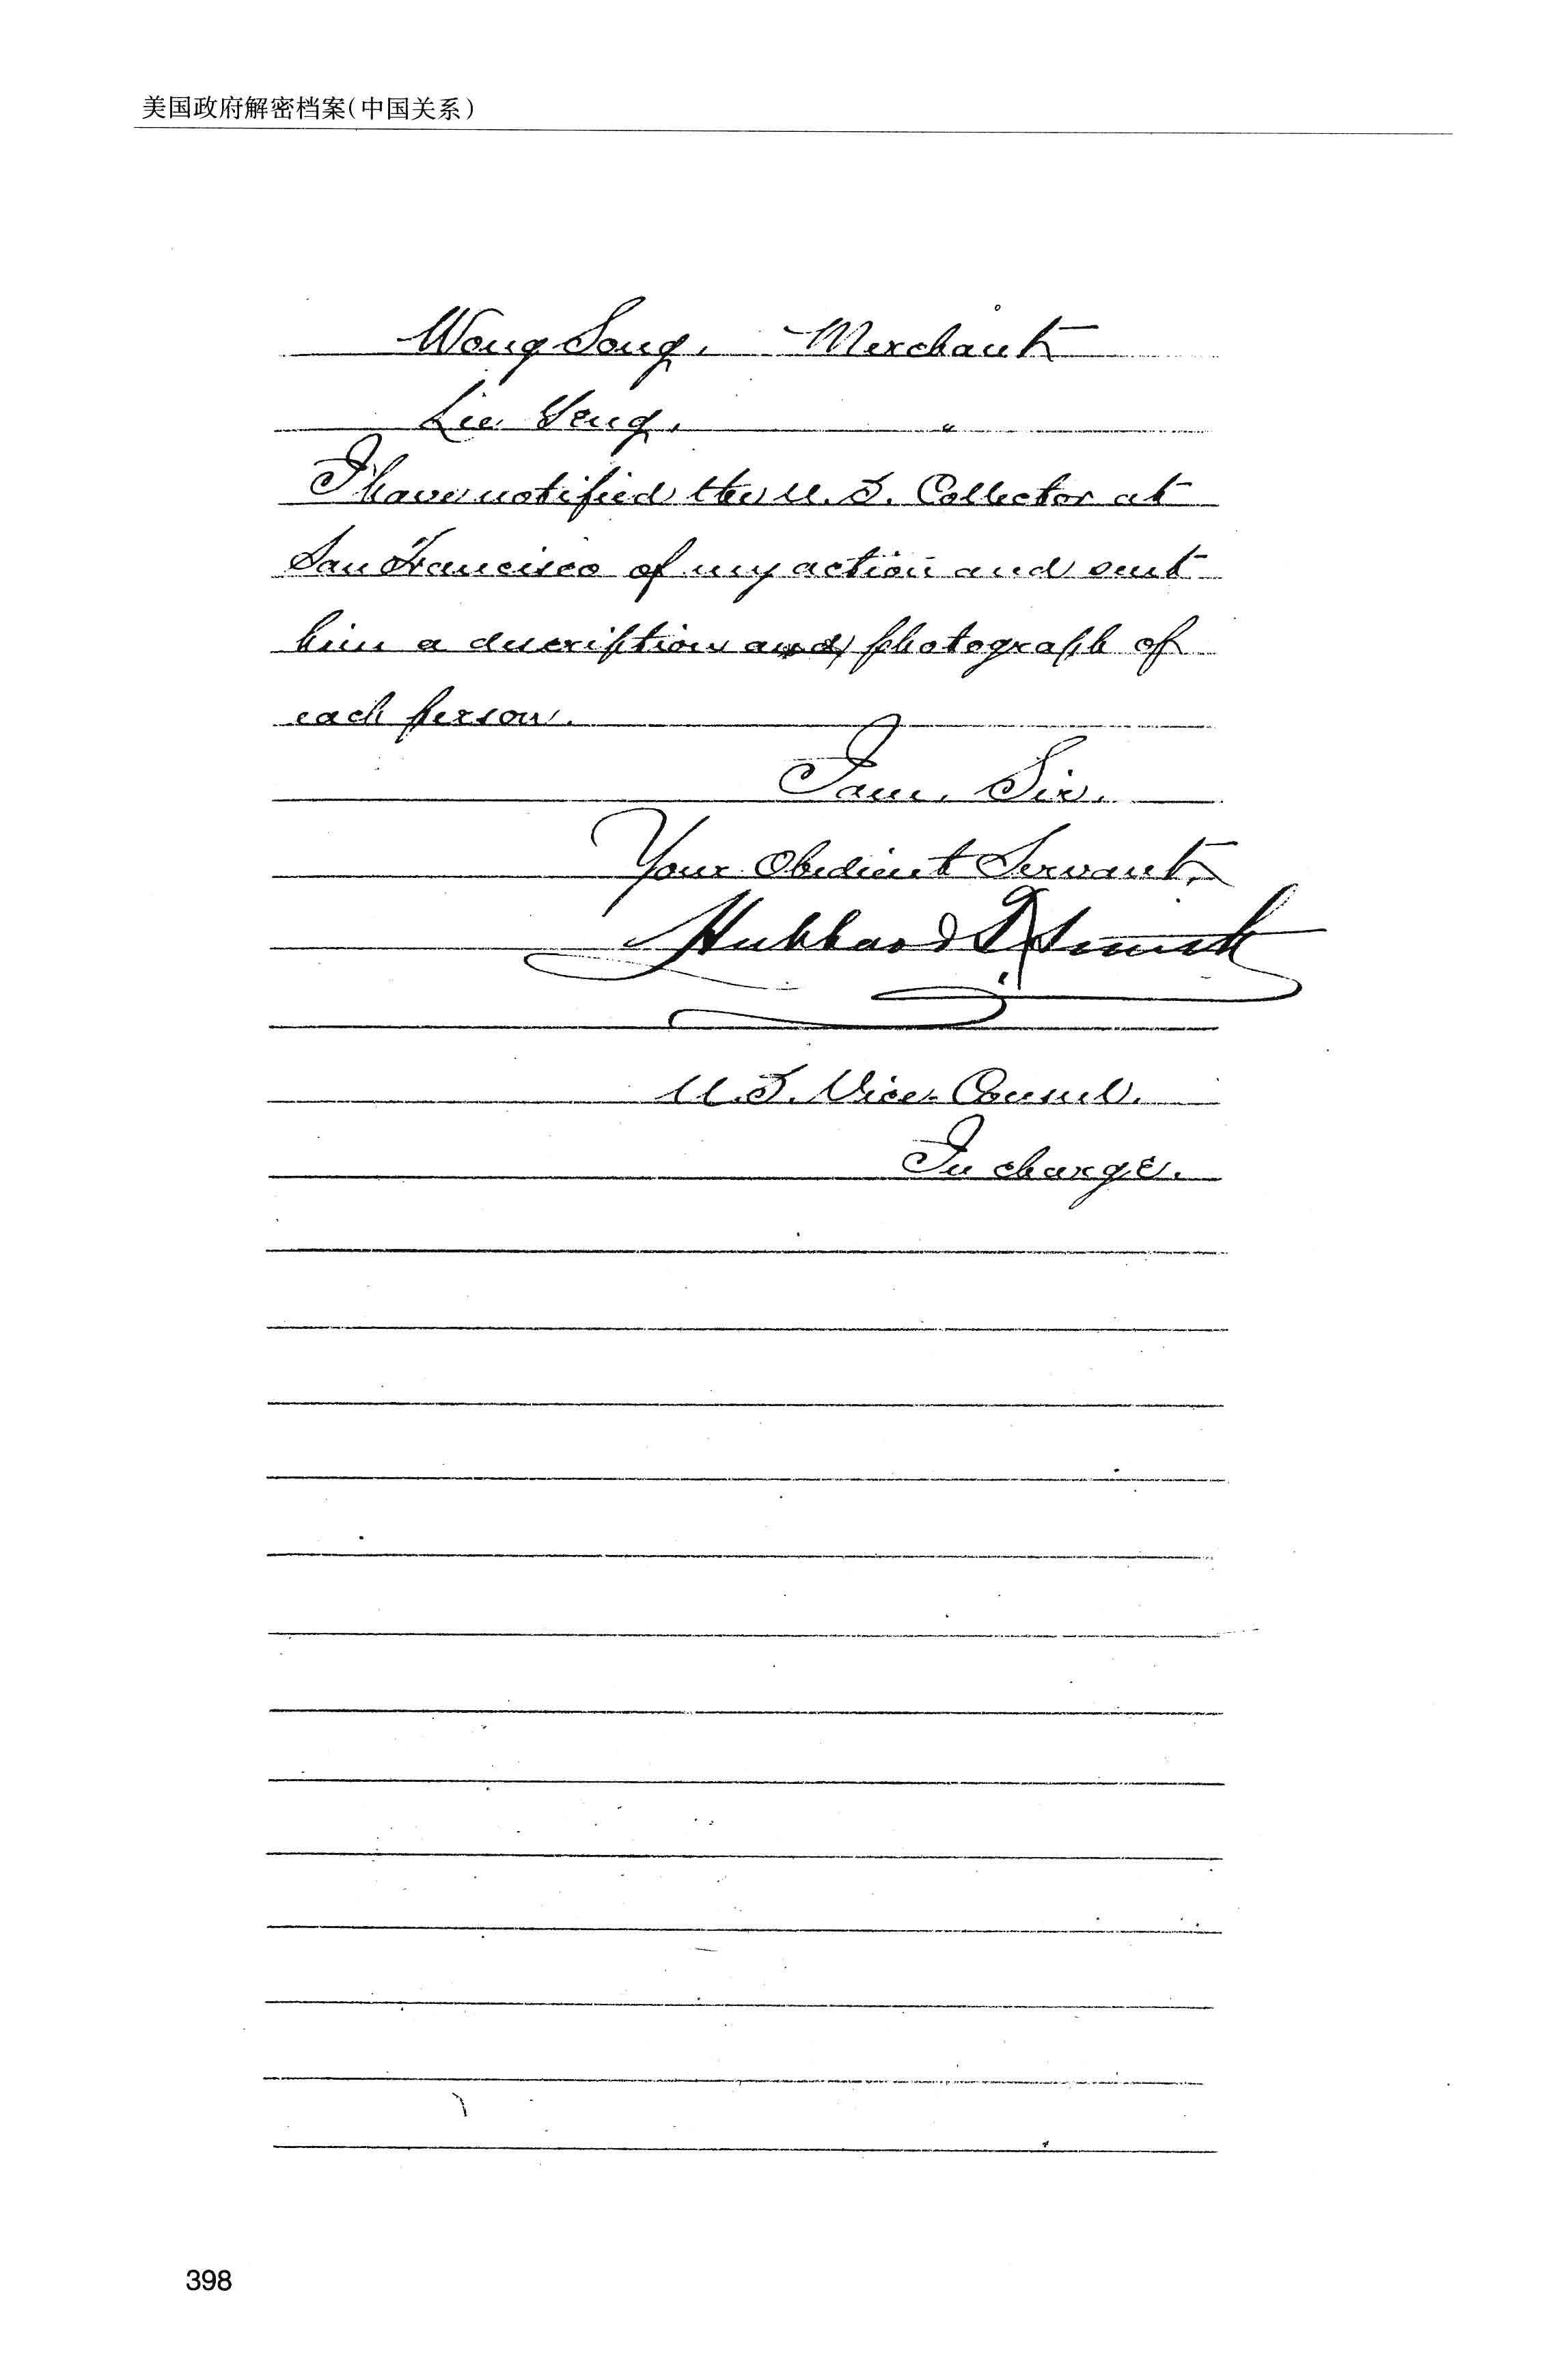 美国政府解密档案(中国关系)
Wong Song, Merchant
Lie Yeng, "
I have notified the U. S. Collector at
San Francisco of my action and sent
him a description and photograph of
each person.
I am, Sir,
Your Obedient Servant,
Hubbard T. Smith
U. S. Vice-Consul.
In charge.
398